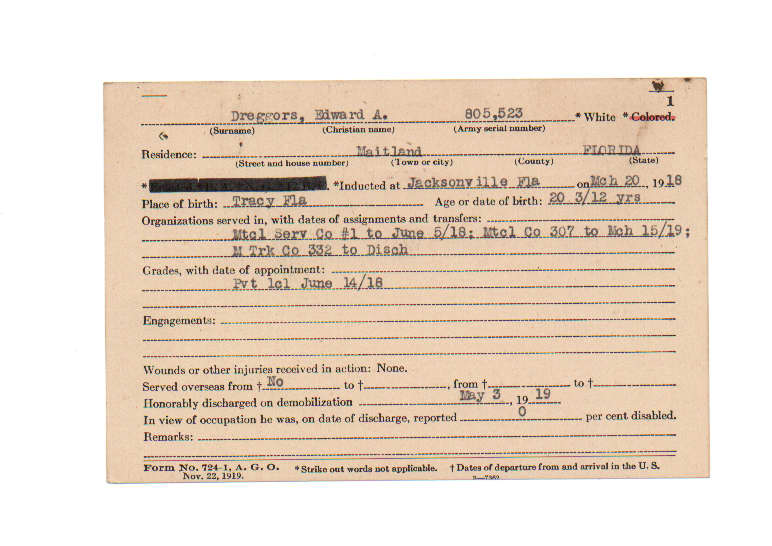 1
Dreggors, Edward A. 805,523 * White * Colored.
(Surname) (Christian name) (Army serial number)
Residence: Maitland FLORIDA
(Street and house number) (Town or city) (County) (State)
* *Inducted at Jacksonville Fla on Mch 20, 1918
Place of birth: Tracy Fla Age or date of birth: 20 3/12 yrs
Organizations served in, with dates of assignments and transfers:
Mtcl Serv Co #1 to June 5/18; Mtcl Co 307 to Mch 15/19;
M Trk Co 332 to Disch
Grades, with date of appointment:
Pvt 1cl June 14/18
Engagements:
Wounds or other injuries received in action: None.
Served overseas from † No to †, from † to †
Honorably discharged on demobilization May 3, 1919
In view of occupation he was, on date of discharge, reported 0 per cent disabled.
Remarks:
Form No. 724-1, A. G. O. *Strike out words not applicable. † Dates of departure from and arrival in the U. S.
Nov. 22, 1919.